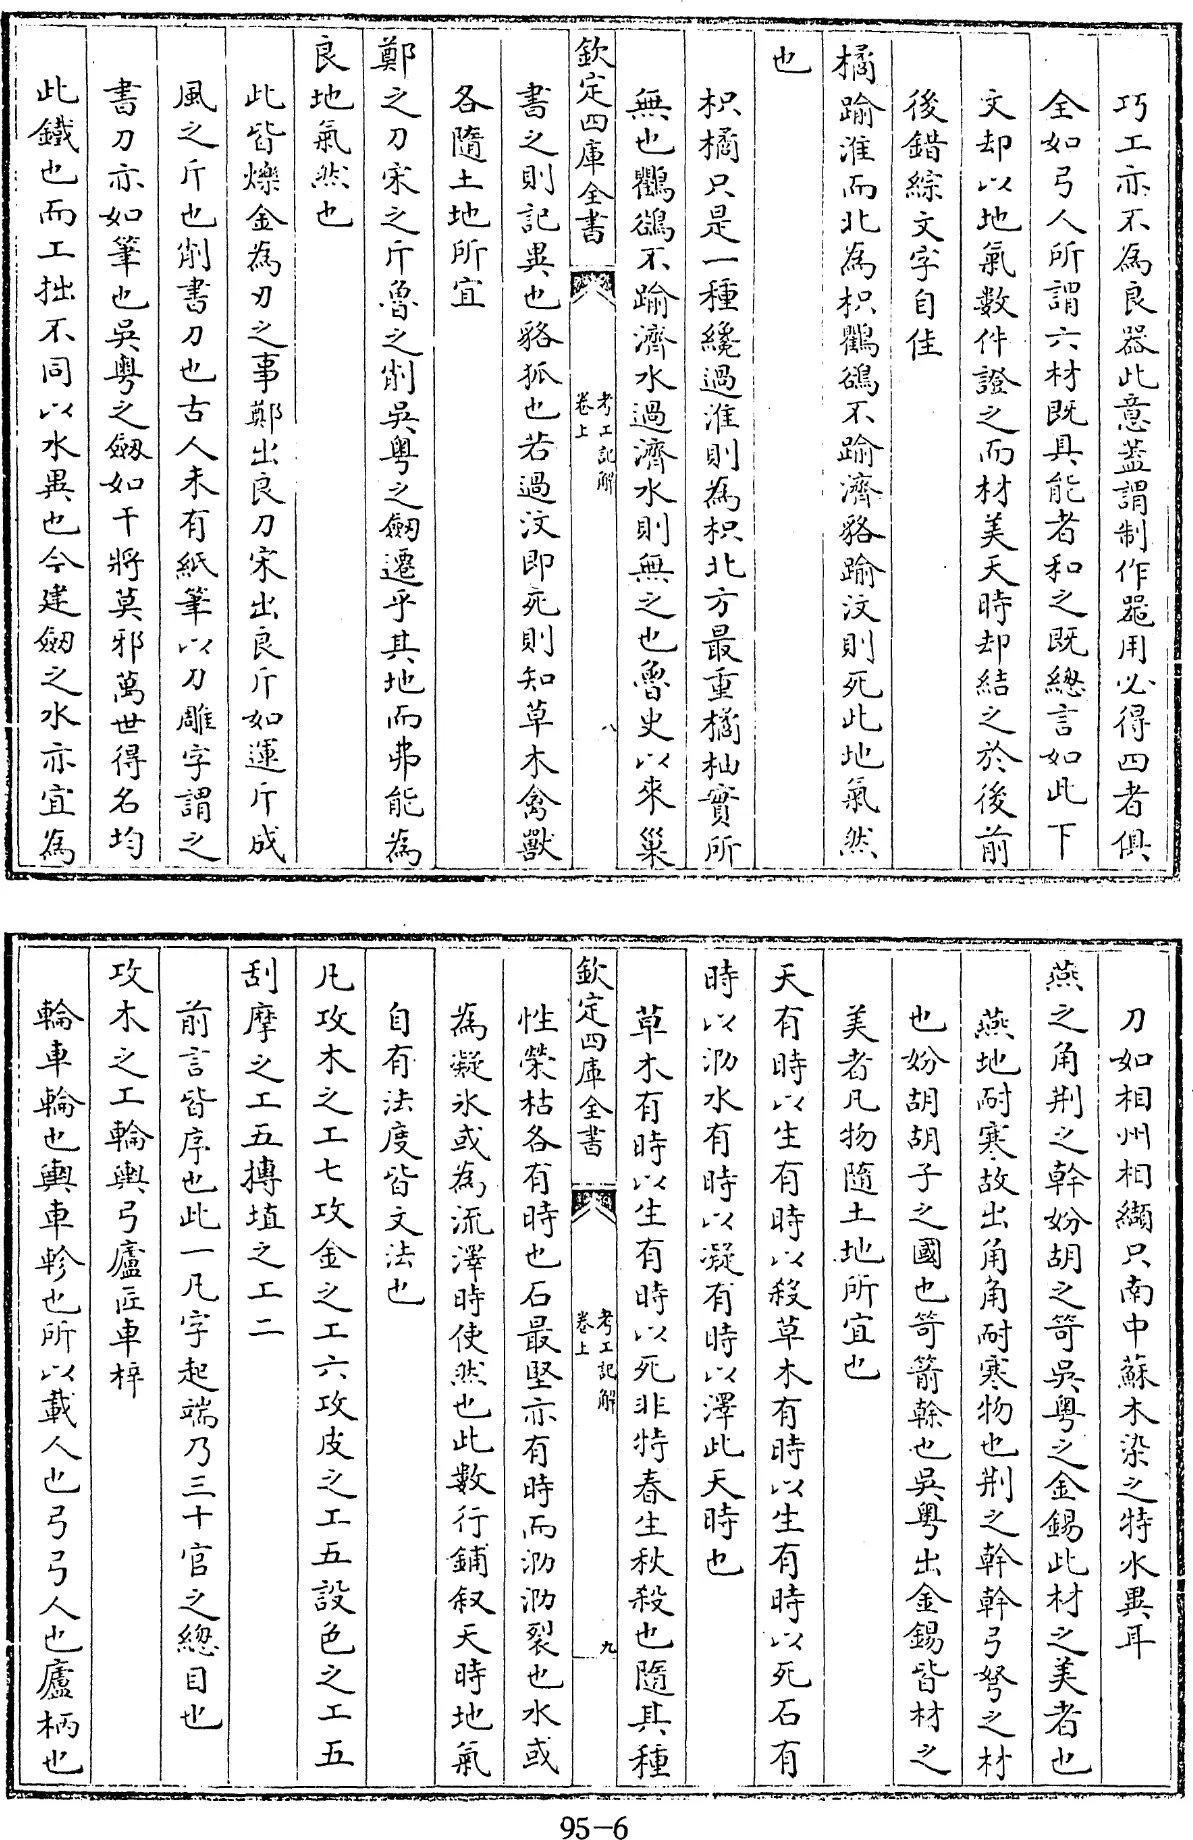 巧工亦不為良器此意蓋謂制作器用必得四者俱
全如弓人所謂六材既具能者和之既總言如此下
文却以地氣數件證之而材美天時却結之於後前
後錯綜文字自佳
橘踰淮而北為枳鸜鵒不踰濟貉踰汶則死此地氣然
也
枳橘只是一種纔過淮則為枳北方最重橘柚實所
無也鸜鵒不踰濟水過濟水則無之也魯史以來巢
欽定四庫全書
考工記解
卷上
八
書之則記異也貉狐也若過汶即死則知草木禽獸
各隨土地所宜
鄭之刀宋之斤魯之削吳粤之劔遷乎其地而弗能為
良地氣然也
此皆爍金為刃之事鄭出良刀宋出良斤如運斤成
風之斤也削書刀也古人未有紙筆以刀雕字謂之
書刀亦如筆也吳粤之劔如干將莫邪萬世得名均
此鐵也而工拙不同以水異也今建劔之水亦宜為
刀如相州相纈只南中蘇木染之特水異耳
燕之角荆之幹妢胡之笴吳粤之金錫此材之美者也
燕地耐寒故出角角耐寒物也荆之幹幹弓弩之材
也妢胡胡子之國也笴箭榦也吳粤出金錫皆材之
美者凡物隨土地所宜也
天有時以生有時以殺草木有時以生有時以死石有
時以泐水有時以凝有時以澤此天時也
草木有時以生有時以死非特春生秋殺也隨其種
欽定四庫全書
考工記解
卷上
九
性榮枯各有時也石最堅亦有時而泐泐裂也水或
為凝氷或為流澤時使然也此數行鋪叙天時地氣
自有法度皆文法也
凡攻木之工七攻金之工六攻皮之工五設色之工五
刮摩之工五摶埴之工二
前言皆序也此一凡字起端乃三十官之總目也
攻木之工輪輿弓廬匠車梓
輪車輪也輿車軫也所以載人也弓弓人也廬柄也
95-6